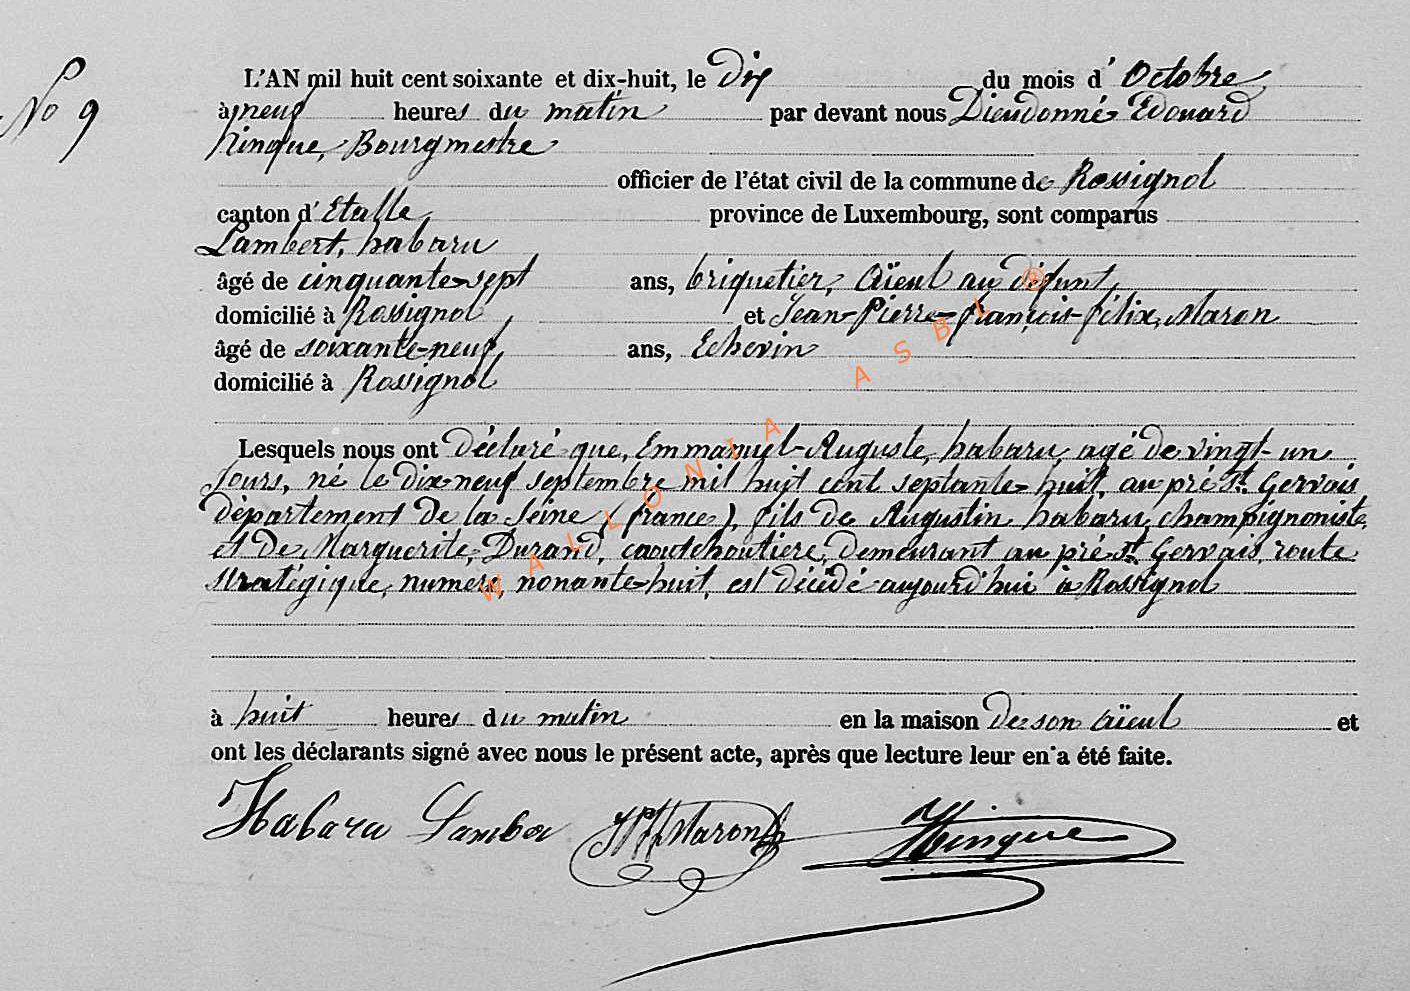 No 9
L'AN mil huit cent soixante et dix-huit, le Dix du mois d' Octobre
à neuf heures du matin par devant nous Dieudonné Edouard
hinque, Bourgmestre
officier de l'état civil de la commune de Rossignol
canton d' Etalle province de Luxembourg, sont comparus
Lambert, habaru
âgé de cinquante-sept ans, briquetier, aïeul au défunt,
domicilié à Rossignol et Jean-Pierre-françois-félix, Maron
âgé de soixante-neuf, ans, Echevin
domicilié à Rossignol
Lesquels nous ont Déclaré que, Emmanuel-Auguste, habaru, agé de vingt-un
Jours, né le Dix-neuf septembre mil huit cent septante-huit, au pré St. Gervais
Département de la Seine, (france), fils de Augustin habaru, champignoniste,
et de Marguerite, Durand, caoutchoutiere, demeurant au pré St. Gervais, route
stratégique, numero, nonante-huit, est décédé aujourd'hui à Rossignol
à huit heures du matin en la maison De son aïeul et
ont les déclarants signé avec nous le présent acte, après que lecture leur en a été faite.
Habaru Lamber JPFF Maron Hinque
WALLONIA ASBL ®